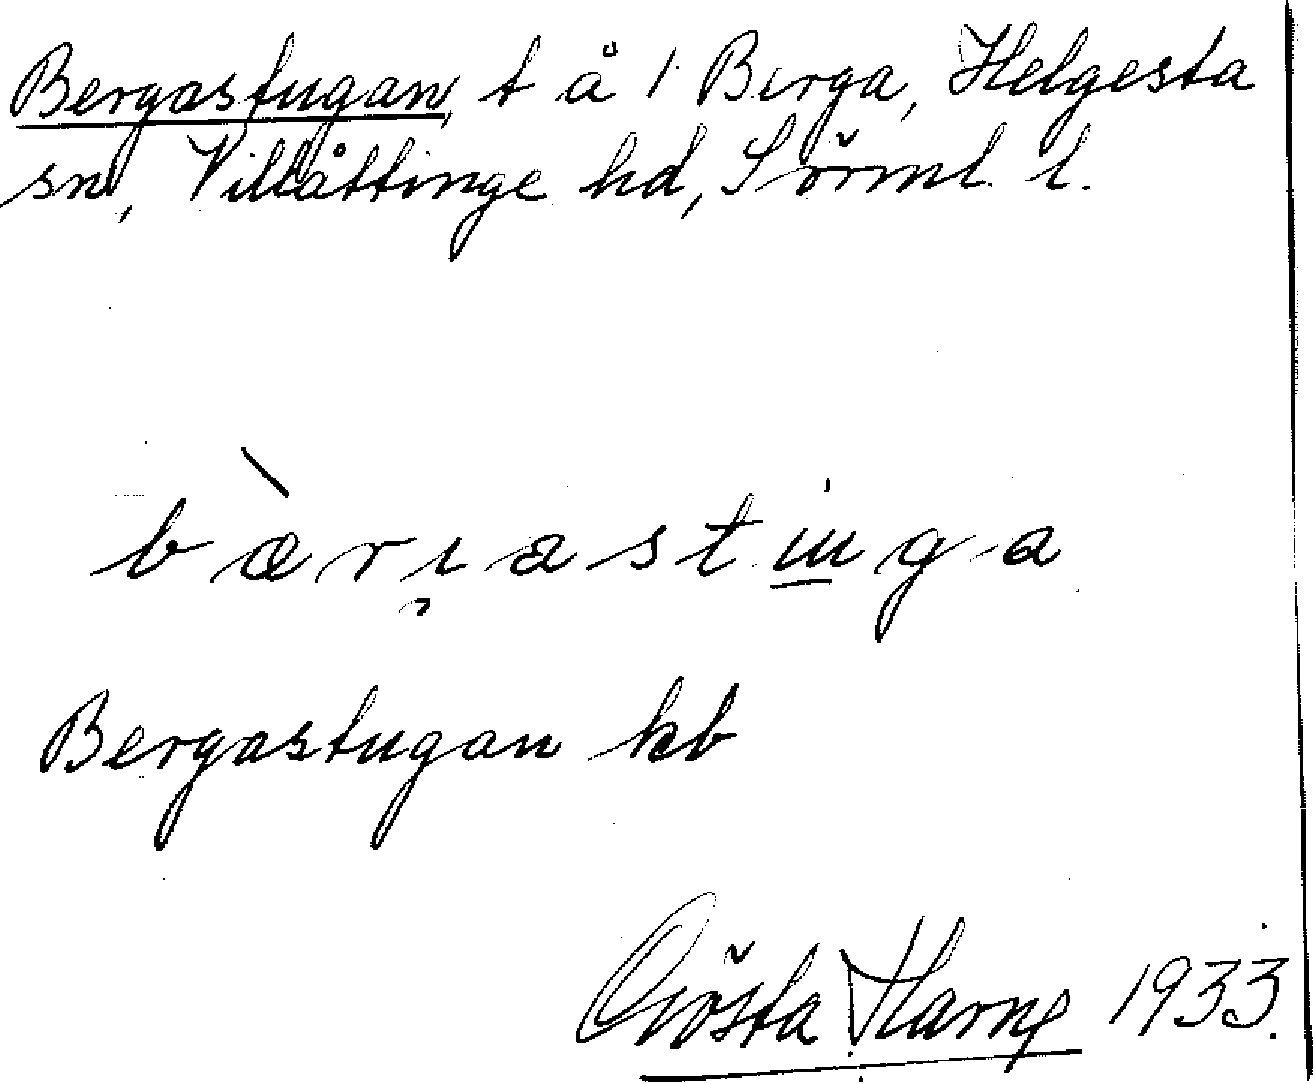 Bergastugan, t å 1 Berga, Helgesta
sn, Villåttinge hd, Sörml. l.
Bergastugan kb
Gösta Harne 1933.